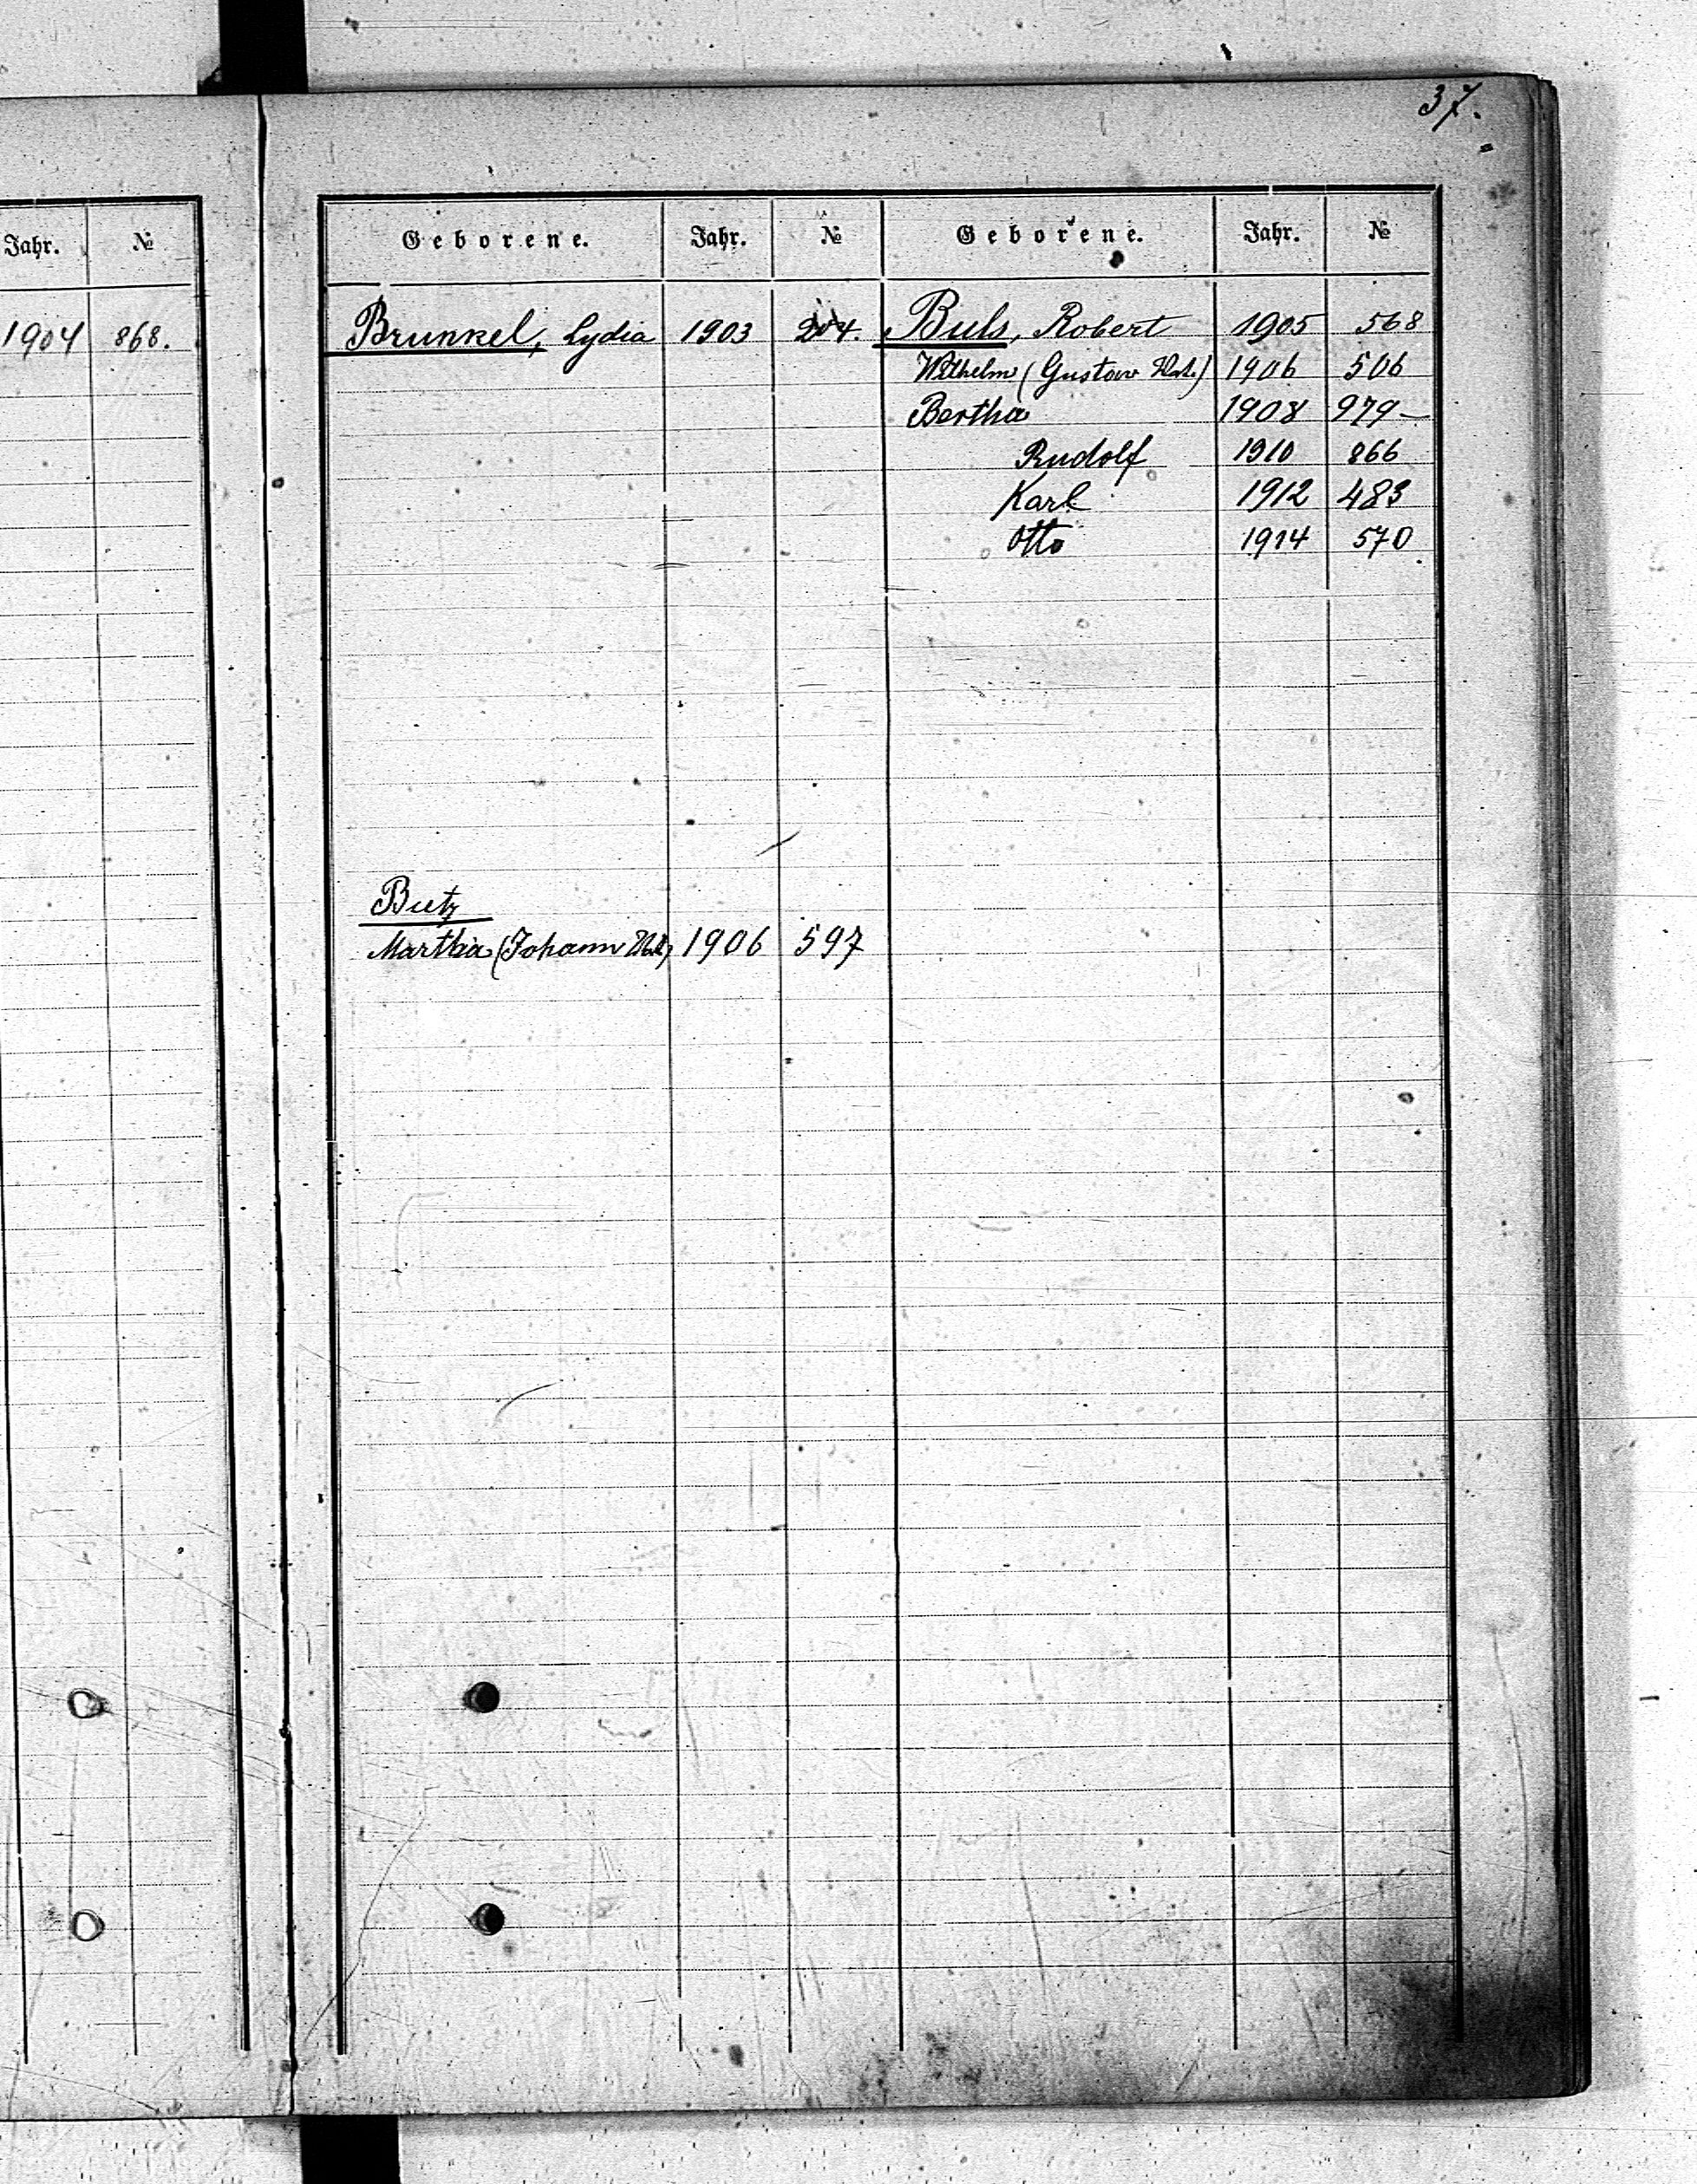 37.
Jahr. №
1904 868.
Geborene. Jahr. № Geborene. Jahr. №
Brunkel, Lydia 1903 204. Buls, Robert 1905 568
Wilhelm (Gustow 1906 506
Bertha 1908 979
Rudolf 1910 866
Karl 1912 483
Otto 1914 570
Butz
Martha (Johann 1906 597